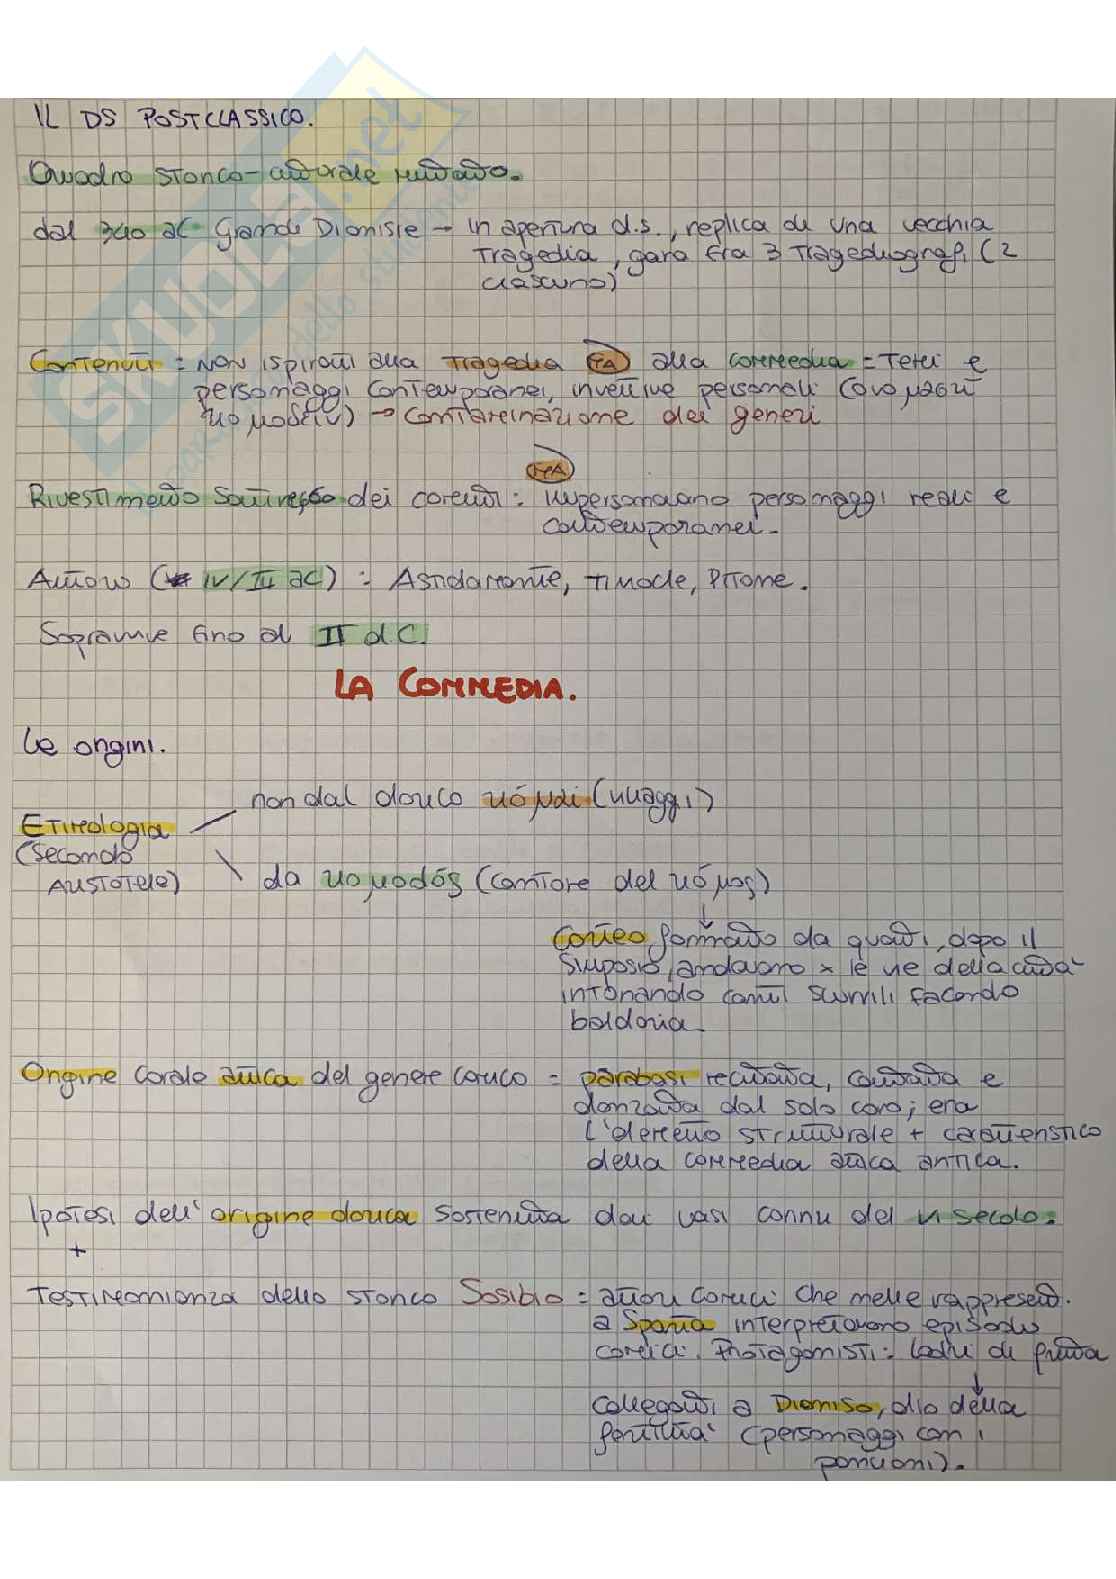 IL DS POSTCLASSICO.
Quadro storico-culturale mutato.
dal 340 aC Grandi Dionisie → in apertura d.s., replica di una vecchia
tragedia, gara fra 3 tragediografi (2
ciascuno)
Contenuti = non ispirati alla tragedia MA alla commedia = temi e
personaggi contemporanei, invettive personali (ονομαστὶ
κωμῳδεῖν) → contaminazione dei generi
Rivestimento satiresco dei coreuti : MA impersonavano personaggi reali e
contemporanei.
Autori (IV/III aC) : Astidamante, Timocle, Pitone.
Sopravvive fino al II d C.
LA COMMEDIA.
Le origini.
non dal dorico κώμαι (villaggi)
Etimologia
(secondo
Aristotele)
da κωμῳδός (cantore del κώμος)
↓
Corteo formato da quanti, dopo il
simposio, andavano x le vie della città
intonando canti scurrili facendo
baldoria.
Origine corale attica del genere comico = parabasi recitata, cantata e
danzata dal solo coro; era
l'elemento strutturale + caratteristico
della commedia attica antica.
Ipotesi dell'origine dorica sostenuta dai vasi corinzi del VI secolo.
+
Testimonianza dello storico Sosibio = attori comici che nelle rappresent.
a Sparta interpretavano episodi
comici. Protagonisti: ladri di frutta
↓
collegati a Dioniso, dio della
fertilità (personaggi con i
pancioni).